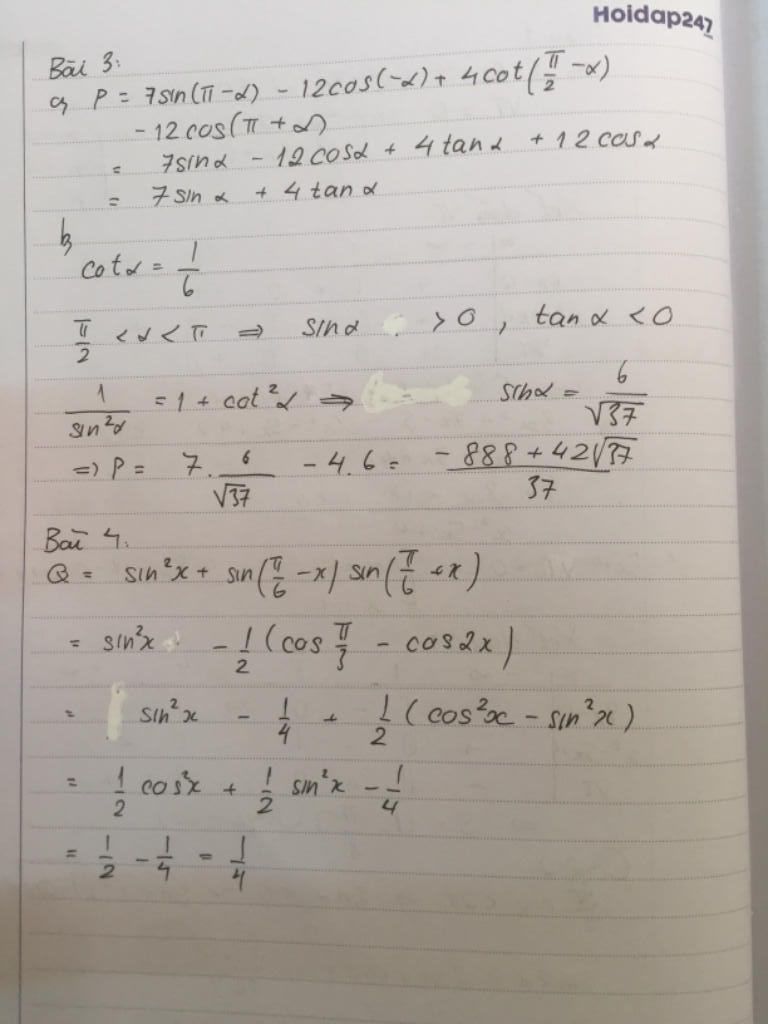 Hoidap247
Bài 3:
a, P = 7sin(π-α) - 12cos(-α) + 4cot(π/2 -α)
-12cos(π + α)
= 7sinα - 12cosα + 4tanα + 12cosα
= 7sinα + 4tanα
b,
cotα = 1/6
π/2 < α < π ⇒ sinα > 0 , tanα < 0
1/sin²α = 1 + cot²α ⇒ sinα = 6/√37
=> P = 7. 6/√37 - 4.6 = (-888 + 42√37)/37
Bài 4:
Q = sin²x + sin(π/6 -x) sin(π/6 +x)
= sin²x - 1/2 (cos π/3 - cos2x)
= sin²x - 1/4 + 1/2 (cos²x - sin²x)
= 1/2 cos²x + 1/2 sin²x - 1/4
= 1/2 - 1/4 = 1/4